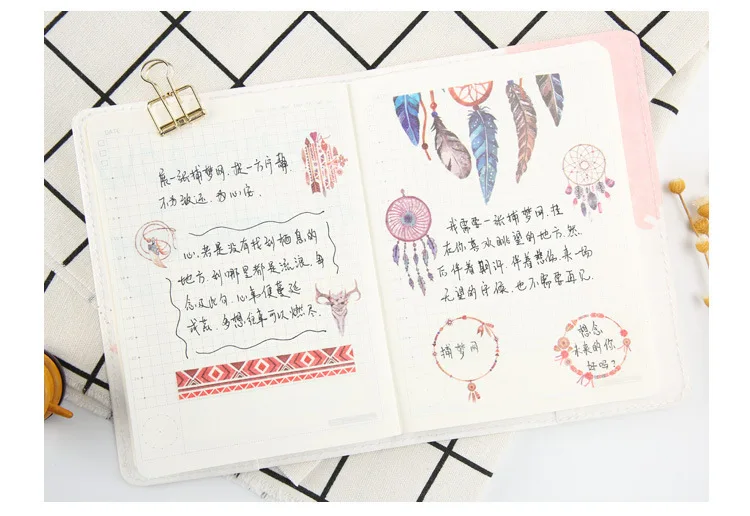 展一张捕梦网,拢一方宁静
不为波还,为心安。
心,若是没有找到栖息的
地方,到哪里都是流浪,每
念及此句,心里便蔓延
成花,多想,往事可以燃尽.
我需要一张捕梦网,挂
在你喜欢眺望的地方,然
后伴着期许,伴着想你,来一场
无望的守候,也不需要再见.
捕梦网
想念
未来的你
好吗?